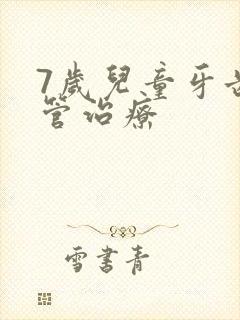 7歲兒童牙齒
管治療
雪書青